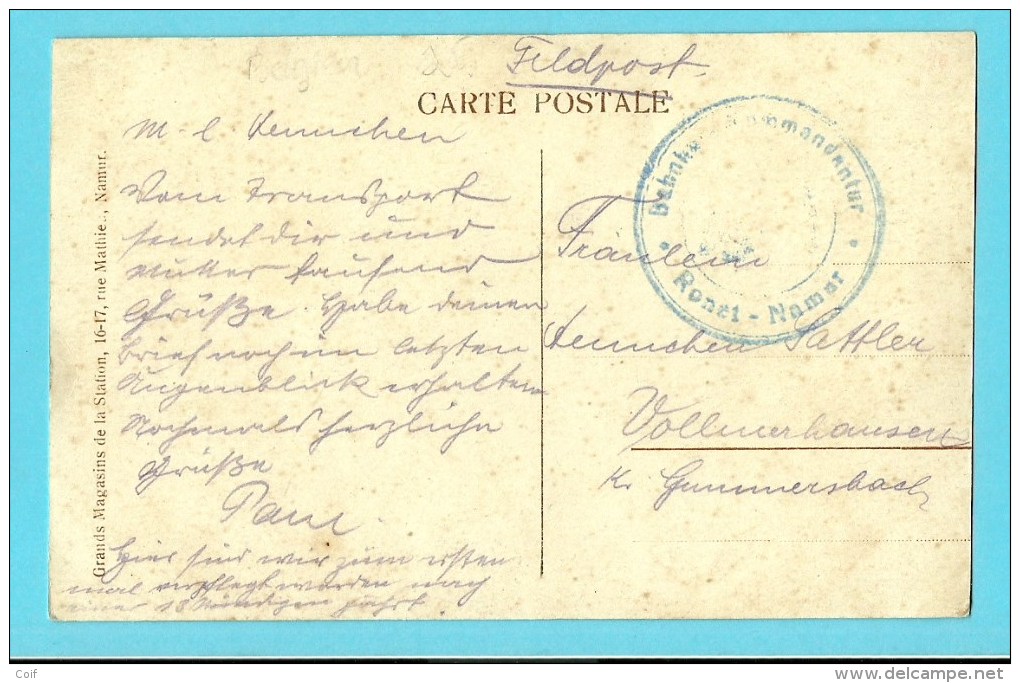 Feldpost
CARTE POSTALE
M. l. Aennchen
Vom Transport
sendet dir und
Mutter tausend
Grüße. Habe deinen
Brief noch im letzten
Augenblick erhalten
Nochmals herzliche
Grüße
Paul.
Hier sind wir zum ersten
mal verpflegt worden nach
einer 18 stündigen Fahrt
Grands Magasins de la Station, 16-17, rue Mathie.., Namur.
Bahnho Kommandantur
Ronet - Namur
Fräulein
Aennchen Sattler
Vollmerhausen
Kr Gummersbach
Coif
www.delcampe.net